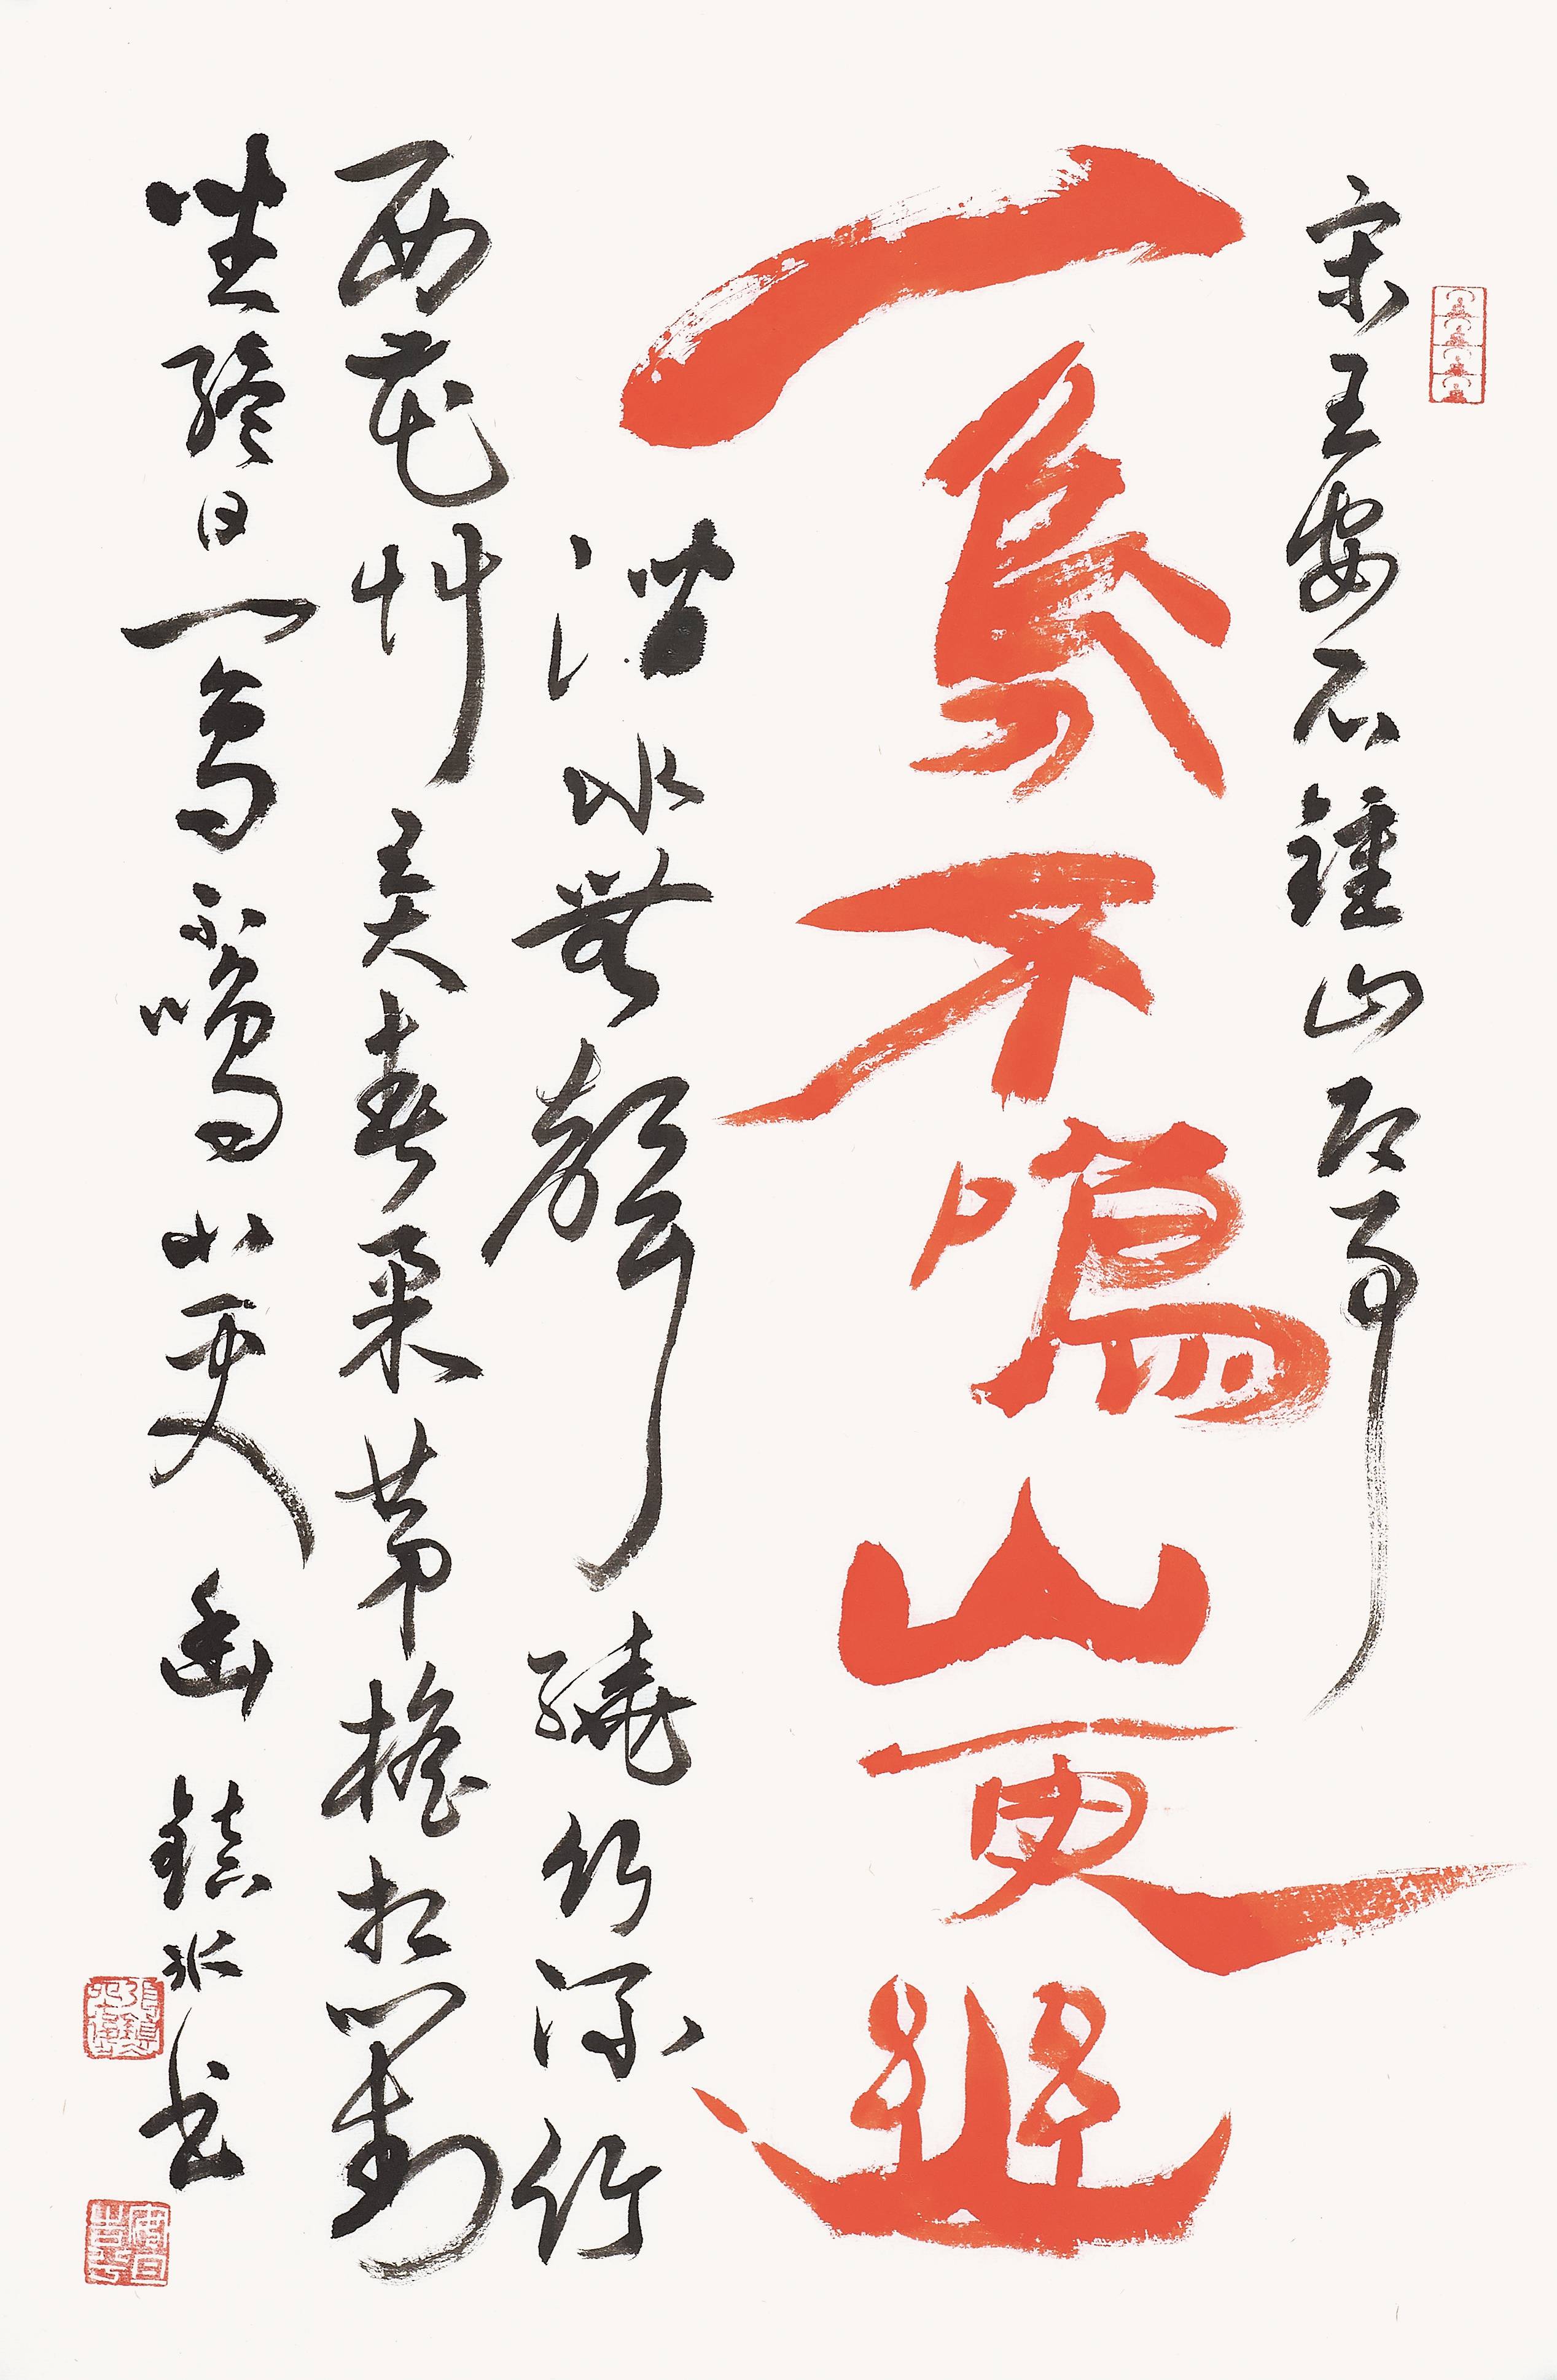 宋王安石鍾山即事
一鳥不鳴山更幽
澗水無聲繞竹流竹
西花艸弄春柔茅檐相對
坐終日一鳥不鳴山更幽 鎮冰書